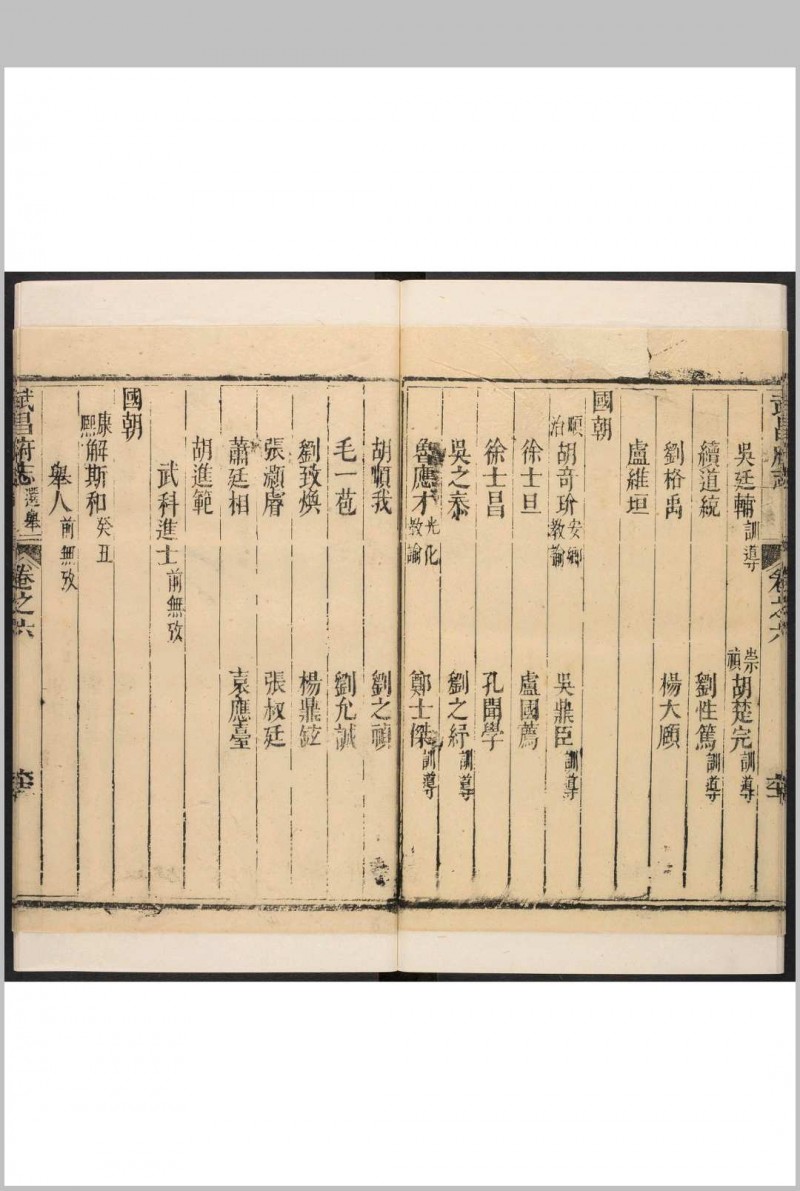 武昌府志 卷之六
吳廷輔訓導 崇禎胡楚完訓導
續道統 劉性篤訓導
劉格禹 楊大頋
盧維垣
國朝
順治胡奇玠安鄉教諭 吳鼎臣訓導
徐士旦 盧國薦
徐士昌 孔聞學
吳之泰 劉之紓訓導
魯應才光化教諭 鄭士傑訓導
胡順我 劉之禎
毛一苞 劉允誠
劉致煥 楊鼎鉉
張灝睿 張叔廷
蕭廷相 袁應臺
胡進範
武科進士前無攷
國朝
康熙解斯和癸丑
舉人前無攷
武昌府志 選舉二 卷之六